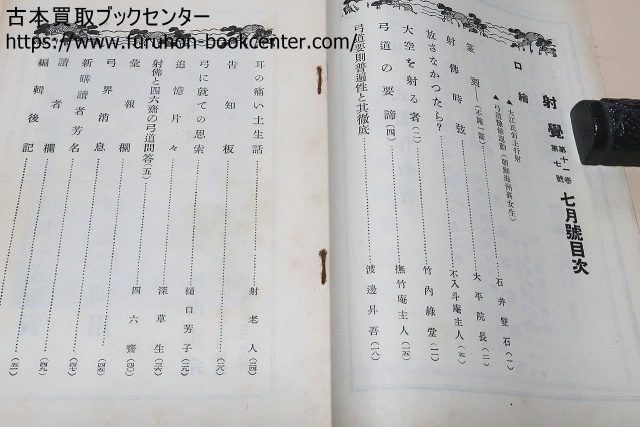 古本買取ブックセンター
https://www.furuhon-bookcenter.com/
射覺 第十一巻 第七號 七月號目次
口繪
▲大江氏卸上行射
▲弓道錬修運動(朝鮮海州高女生)
篆刻―(不施一箭) 石井雙石(一)
放さなかつたら? 大平院長(二)
射佛時弦 不入斗庵主人
大空を射る者(二) 竹內綠堂(二)
弓道の要諦(四) 撫竹庵主人(一五)
弓道要則普遍性と其徹底 渡邊昇吾(一八)
耳の痛い土生話 射老人(二四)
告知板(二八)
弓に就ての思索 樋口芳子(二九)
追憶片々 深草生
射佛と四六齋の弓道問答(五) 四六齋
彙報欄
弓界消息(四五)
新購讀者芳名(四七)
讀者欄(四九)
編輯後記(五一)